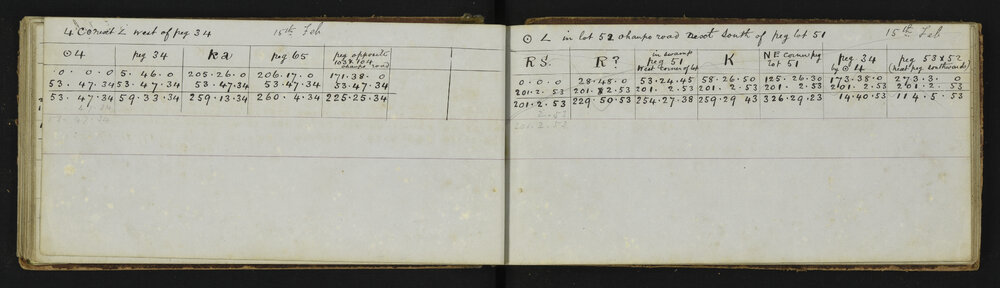 4 Correct ∠ west of peg 34 15th Feb
⊙4 peg 34 Ka peg 65 peg opposite 103 & 104 ohaupo road
0. 0. 0 5. 46. 0 205. 26. 0 206. 17. 0 171. 38. 0
53. 47. 34 53. 47. 34 53. 47. 34 53. 47. 34 53. 47. 34
53. 47. 34 59. 33. 34 259. 13. 34 260. 4. 34 225. 25. 34
53. 47. 34
⊙ ∠ in lot 52 ohaupo road next south of peg lot 51 15th Feb
RS. R? in swamp peg 51 West corner of lot K NE corner peg lot 51 peg 34 by ⊙ 4 peg 53 & 52 (next peg southwards)
0. 0. 0 28. 48. 0 53. 24. 45 58. 26. 50 125. 26. 30 173. 38. 0 273. 3. 0
201. 2. 53 201. 2. 53 201. 2. 53 201. 2. 53 201. 2. 53 201. 2. 53 201. 2. 53
229. 50. 53 254. 27. 38 259. 29 43 326. 29. 23 14. 40. 53 114. 5. 53
2. 53
201. 2. 53